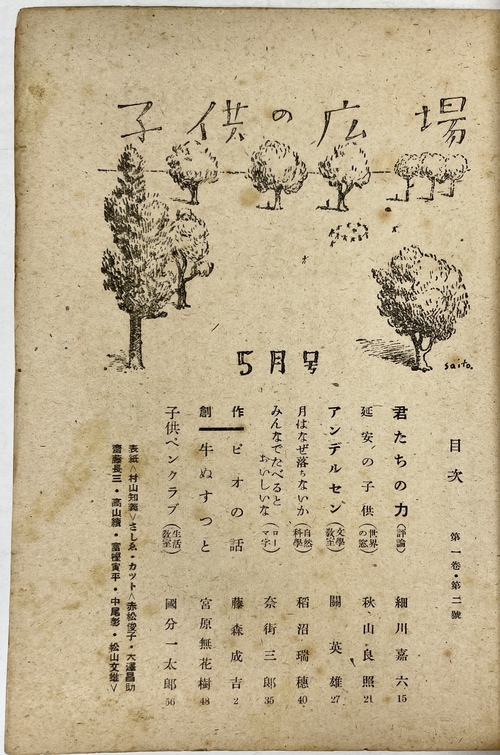 子供の広場
saito.
5月号
目次 第一卷・第二號
君たちの力(評論) 細川嘉六 15
延安の子供(世界の窓) 秋山良照 21
アンデルセン(文學教室) 關英雄 27
月はなぜ落ちないか(自然科學) 稻沼瑞穗 40
みんなでたべるとおいしいな(ローマ字) 奈街三郎 35
創作
ピオの話 藤森成吉 2
牛ぬすっと 宮原無花樹 48
子供ペンクラブ(生活教室) 國分一太郎 56
表紙<村山知義>さしゑ・カット<赤松俊子・大澤昌助
齋藤長三・高山續・富樫寅平・中尾彰・松山文雄>